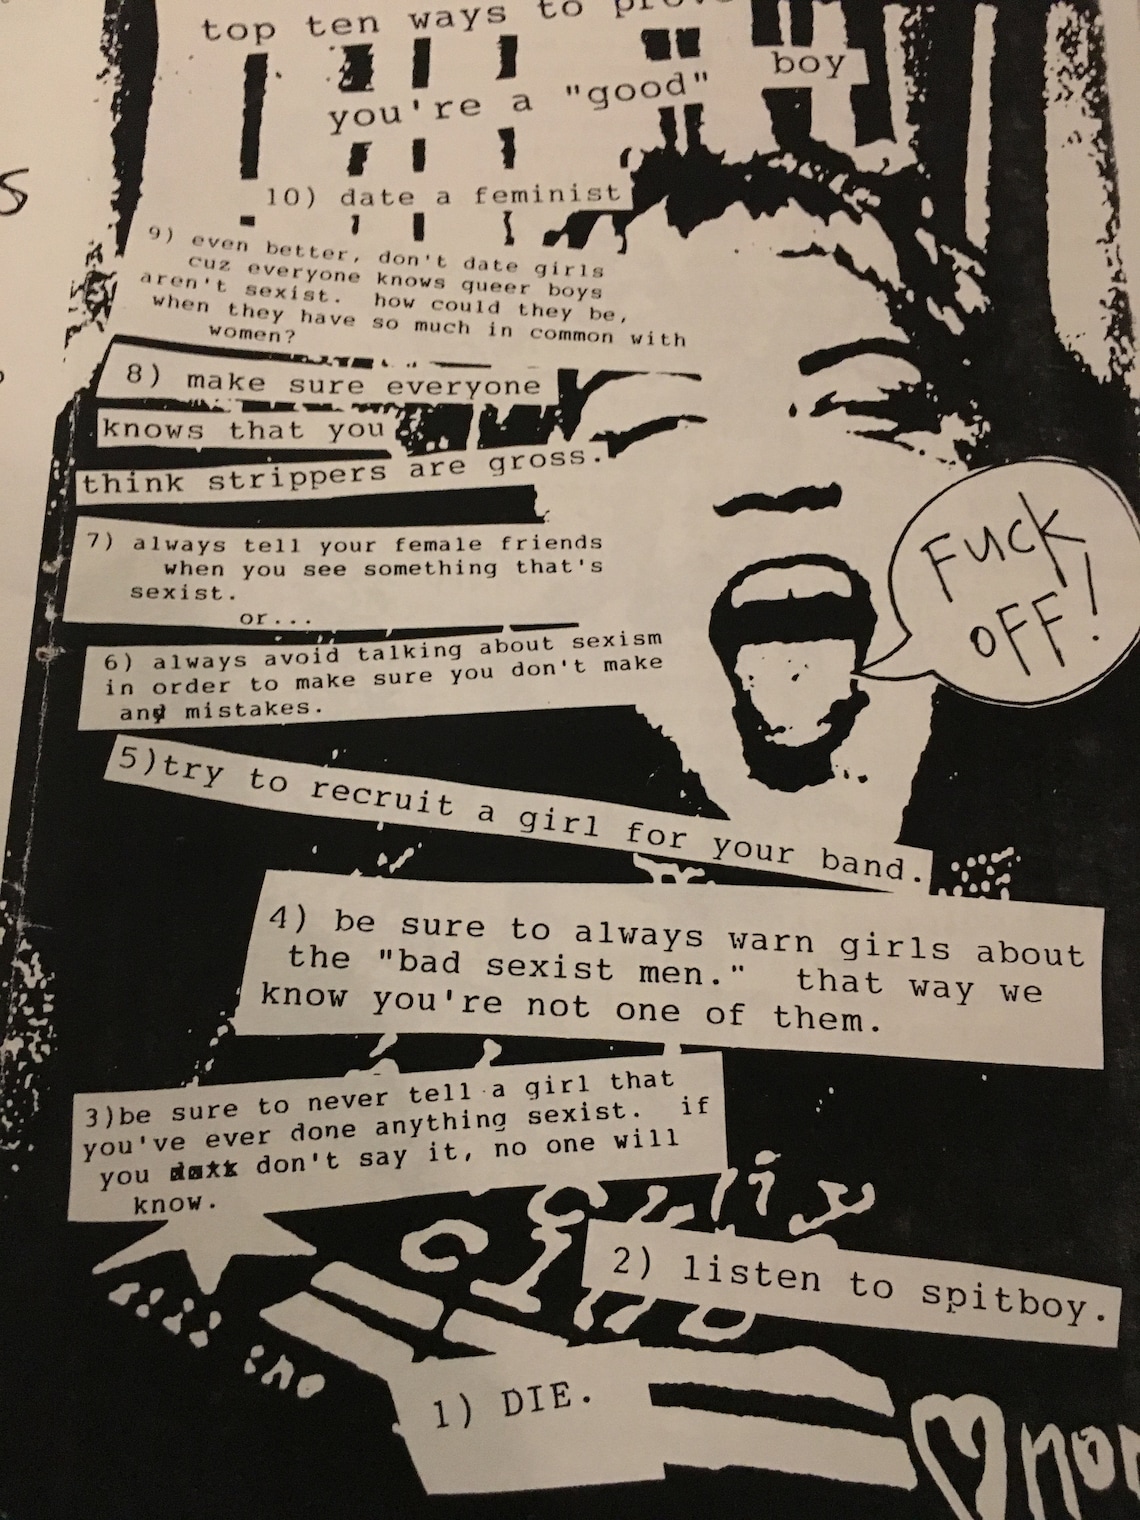 top ten ways to prov
you're a "good" boy
10) date a feminist
9) even better, don't date girls
cuz everyone knows queer boys
aren't sexist. how could they be,
when they have so much in common with
women?
8) make sure everyone
knows that you
think strippers are gross.
7) always tell your female friends
when you see something that's
sexist.
or...
6) always avoid talking about sexism
in order to make sure you don't make
any mistakes.
FUCK
OFF!
5)try to recruit a girl for your band.
4) be sure to always warn girls about
the "bad sexist men." that way we
know you're not one of them.
3)be sure to never tell a girl that
you've ever done anything sexist. if
you don't say it, no one will
know.
2) listen to spitboy.
1) DIE.